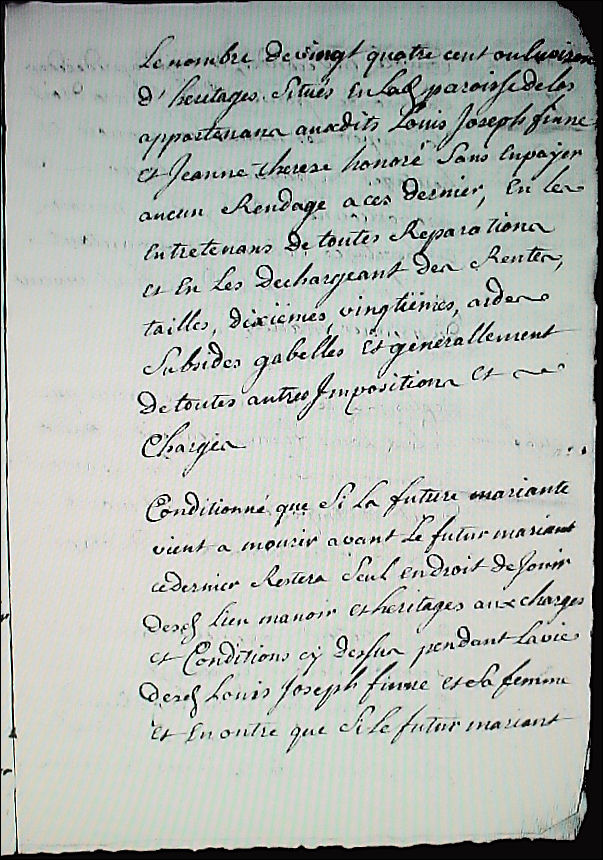 Le nombre de vingt quatre cent ou luviron
d'heritages Situés en lad paroisse de los
appartenans auxdits Louis Joseph finne
et Jeanne therese honoré Sans En payer
aucun Rendage a ces dernier, En les
Entretenans de toutes Reparations
et En Les Dechargeant des Rentes,
tailles, dixiémes, vingtiémes, aides
Subsides gabelles Et generallement
De toutes autres Impositions Et
Charges
Conditionné que Si La future mariante
vient a mourir avant Le futur mariant
ce dernier Restera Seul en droit de Jouir
desd Lieu manoir et heritages aux charges
et Conditions cy dessus pendant La vie
desd Louis Joseph finne et Sa femme
et En outre que Si Le futur mariant